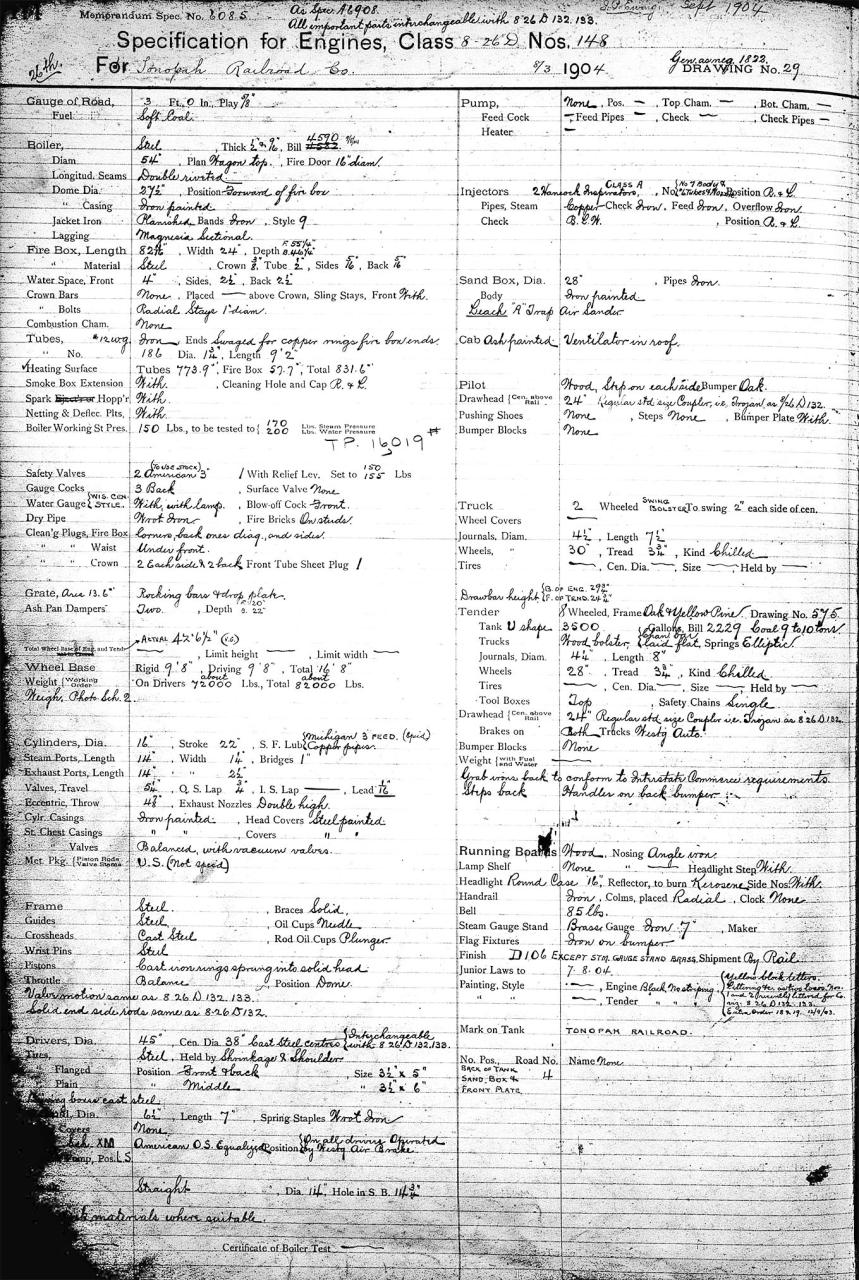 Memorandum Spec. No. 6085.
As Spec. A6908.
All important parts interchangeable with 8-26 D 132. 133.
Sept 1904
Specification for Engines, Class 8-26 D, Nos. 148
26th.
For Tonopah Railroad Co.
8/3 1904
Gen. as neg. 1822.
DRAWING No. 29
Gauge of Road, 3 Ft., 0 In., Play 5/8"
Fuel Soft Coal.
Boiler, Steel , Thick 1/2" & 9/16", Bill 4590
Diam 54" , Plan Wagon top. , Fire Door 16" diam.
Longitud. Seams Double riveted
Dome Dia. 27 1/2" , Position Forward of fire box
" Casing Iron painted
Jacket Iron Planished Bands Iron , Style 9
Lagging Magnesia Sectional.
Fire Box, Length , Width 24", Depth F. 55 1/4" B. 46 1/4"
" Material Steel , Crown 3/8" Tube 1/2", Sides 5/16", Back 5/16"
Water Space, Front 4" , Sides, 2 1/2", Back 2 1/2"
Crown Bars None , Placed — above Crown, Sling Stays, Front With.
" Bolts Radial Stays 1" diam.
Combustion Cham. None
Tubes, #12 w.g. Iron , Ends Swaged for copper rings fire box ends.
" No. 186 Dia. 1 3/4", Length 9' 2"
Heating Surface Tubes 773.9", Fire Box 57.7", Total 831.6"
Smoke Box Extension With. , Cleaning Hole and Cap R. & L.
Spark Ejector or Hopp'r With.
Netting & Deflec. Plts, With.
Boiler Working St Pres. 150 Lbs., to be tested to { 170 Lbs. Steam Pressure 200 Lbs. Water Pressure
T.P. 16019#
Safety Valves 2 American 3" (TO USE STOCK) 1 With Relief Lev. Set to 150 155 Lbs
Gauge Cocks 3 Back , Surface Valve None
Water Gauge { WIS. CEN. STYLE. With, with lamp. , Blow-off Cock Front.
Dry Pipe Wrot Iron , Fire Bricks On studs.
Clean'g Plugs, Fire Box Corners, back ones diag., and sides.
" " Waist Under front.
" " Crown 2 Each side & 2 back Front Tube Sheet Plug 1
Grate, Area 13.6" Rocking bars & drop plate.
Ash Pan Dampers Two. , Depth F. 20" B. 22"
Total Wheel Base of Eng. and Tend. ACTUAL 42' 6 1/2"
, Limit height — , Limit width —
Wheel Base Rigid 9' 8" , Driving 9' 8" , Total 16' 8"
Weight { Working Order On Drivers about 72000 Lbs., Total about 82000 Lbs.
Weigh, Photo. Sch. 2.
Cylinders, Dia. 16" , Stroke 22" , S. F. Lub { Michigan 3 FEED. Copper pipes.
Steam Ports, Length 14" , Width 1 1/4" , Bridges 1"
Exhaust Ports, Length 14" , " 2 1/2"
Valves, Travel 5 1/4" , O. S. Lap 3/4" , I. S. Lap — , Lead 1/16"
Eccentric, Throw , Exhaust Nozzles Double high.
Cylr. Casings Iron painted , Head Covers Steel painted
St. Chest Casings " " , Covers " "
" Valves Balanced, with vacuum valves.
Met. Pkg. { Piston Rods Valve Stems U.S. (Not spec'd)
Frame Steel. , Braces Solid,
Guides Steel , Oil Cups Needle
Crossheads Cast Steel , Rod Oil Cups Plunger.
Wrist Pins Steel
Pistons Cast iron rings sprung into solid head
Throttle Balance , Position Dome.
Valve motion same as 8-26 D 132. 133.
Solid end side rods same as 8-26 D 132.
Drivers, Dia. 45" , Cen. Dia. 38" Cast Steel centres { Interchangeable with 8-26 D 132, 133.
Tires, Steel, Held by Shrinkage & Shoulder
" Flanged Position Front & back , Size 3 1/2" x 5"
" Plain " Middle " 3 1/2" x 6"
boxes cast steel.
Dia. 6 1/2" , Length 7" , Spring Staples Wrot Iron
Covers None
XM American O.S. Equalized Position { On all drivers Operated by Westg Air Brake.
Pump, Pos. L S
Straight , Dia. 14", Hole in S. B. 14 3/4"
materials where suitable.
Certificate of Boiler Test —
Pump, None , Pos. — , Top Cham. — , Bot. Cham. —
Feed Cock — Feed Pipes — , Check — , Check Pipes —
Heater —
Injectors 2 Hancock Inspirators, CLASS A , No. { No 7 Body & Position R. & L.
Pipes, Steam Copper Check Iron , Feed Iron , Overflow Iron
Check B.L.W. , Position R. & L.
Sand Box, Dia. 28" , Pipes Iron.
Body Iron painted
Leach "A" Trap Air Sander.
Cab Ash painted Ventilator in roof.
Pilot Wood, Step on each side Bumper Oak.
Drawhead { Cen. above Rail 24" Regular std size Coupler, i.e. Trojan as 8/26 D 132.
Pushing Shoes None , Steps None , Bumper Plate With.
Bumper Blocks None
Truck 2 Wheeled SWING BOLSTER To swing 2" each side of cen.
Wheel Covers —
Journals, Diam. 4 1/2", Length 7 1/2"
Wheels, " 30" , Tread 3 3/4", Kind Chilled
Tires — , Cen. Dia. — , Size — Held by —
Drawbar height { B. OF ENG. 29 1/2" F. OF TEND. 24 1/2"
Tender 8 Wheeled, Frame Oak & Yellow Pine, Drawing No. 575.
Tank U shape 3500 Gallons, Bill 2229 Coal 9 to 10 tons
Trucks Wood bolster, { Chan. bar laid flat, Springs Elliptic
Journals, Diam. 4 1/4", Length 8"
Wheels 28" , Tread 3 3/4", Kind Chilled
Tires — , Cen. Dia. — , Size — Held by —
Tool Boxes Top , Safety Chains Single
Drawhead { Cen. above Rail 24" Regular std size Coupler i.e. Trojan as 8-26 D 132.
Brakes on Both Trucks Westg Auto.
Bumper Blocks None
Weight { with Fuel and Water —
Grab irons back to conform to Interstate Commerce requirements
Steps back Handles on back bumper.
Running Boards Wood , Nosing Angle iron.
Lamp Shelf None " — Headlight Step With.
Headlight Round Case 16", Reflector, to burn Kerosene Side Nos. With.
Handrail Iron , Colms, placed Radial , Clock None
Bell 85 lbs.
Steam Gauge Stand Brass Gauge Iron 7" , Maker
Flag Fixtures Iron on bumper
Finish D106 EXCEPT STM. GAUGE STAND BRASS, Shipment By Rail
Junior Laws to 7. 8. 04.
Painting, Style — , Engine Black No striping. { Yellow block letters.
" " — , Tender " " "
Lettering &c. as two locos Nos.
1 and 2 recently lettered for Co.
8-26 D 132. 133.
Extra Order 1829. 12/9/03.
Mark on Tank TONOPAH RAILROAD.
No. Pos., Road No. Name None
BACK OF TANK 4
SAND. BOX &
FRONT PLATE.